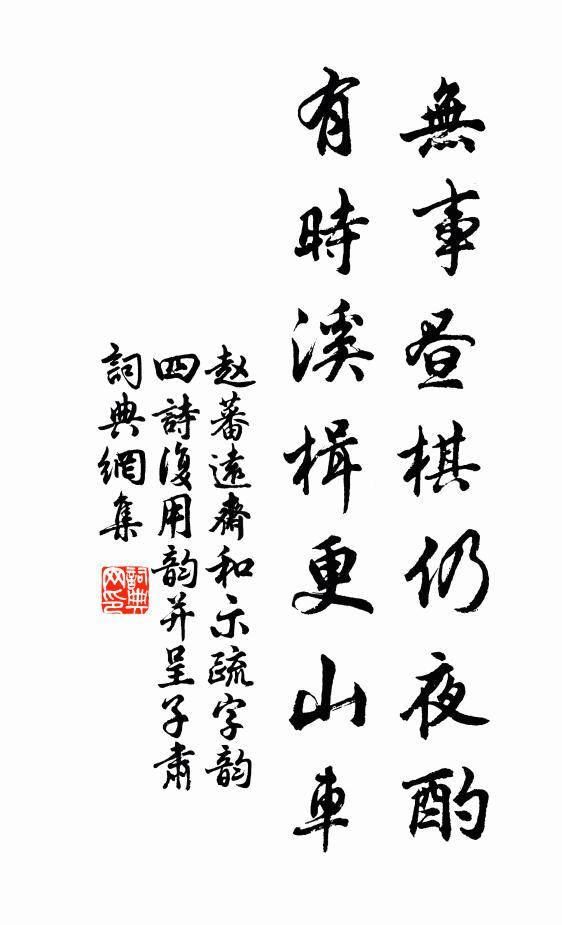 無事昼棋仍夜酌
有時溪楫更山車
赵蕃遠齋和示疏字韵
四詩復用韵并呈子肅
詞典網集
詞典
网印